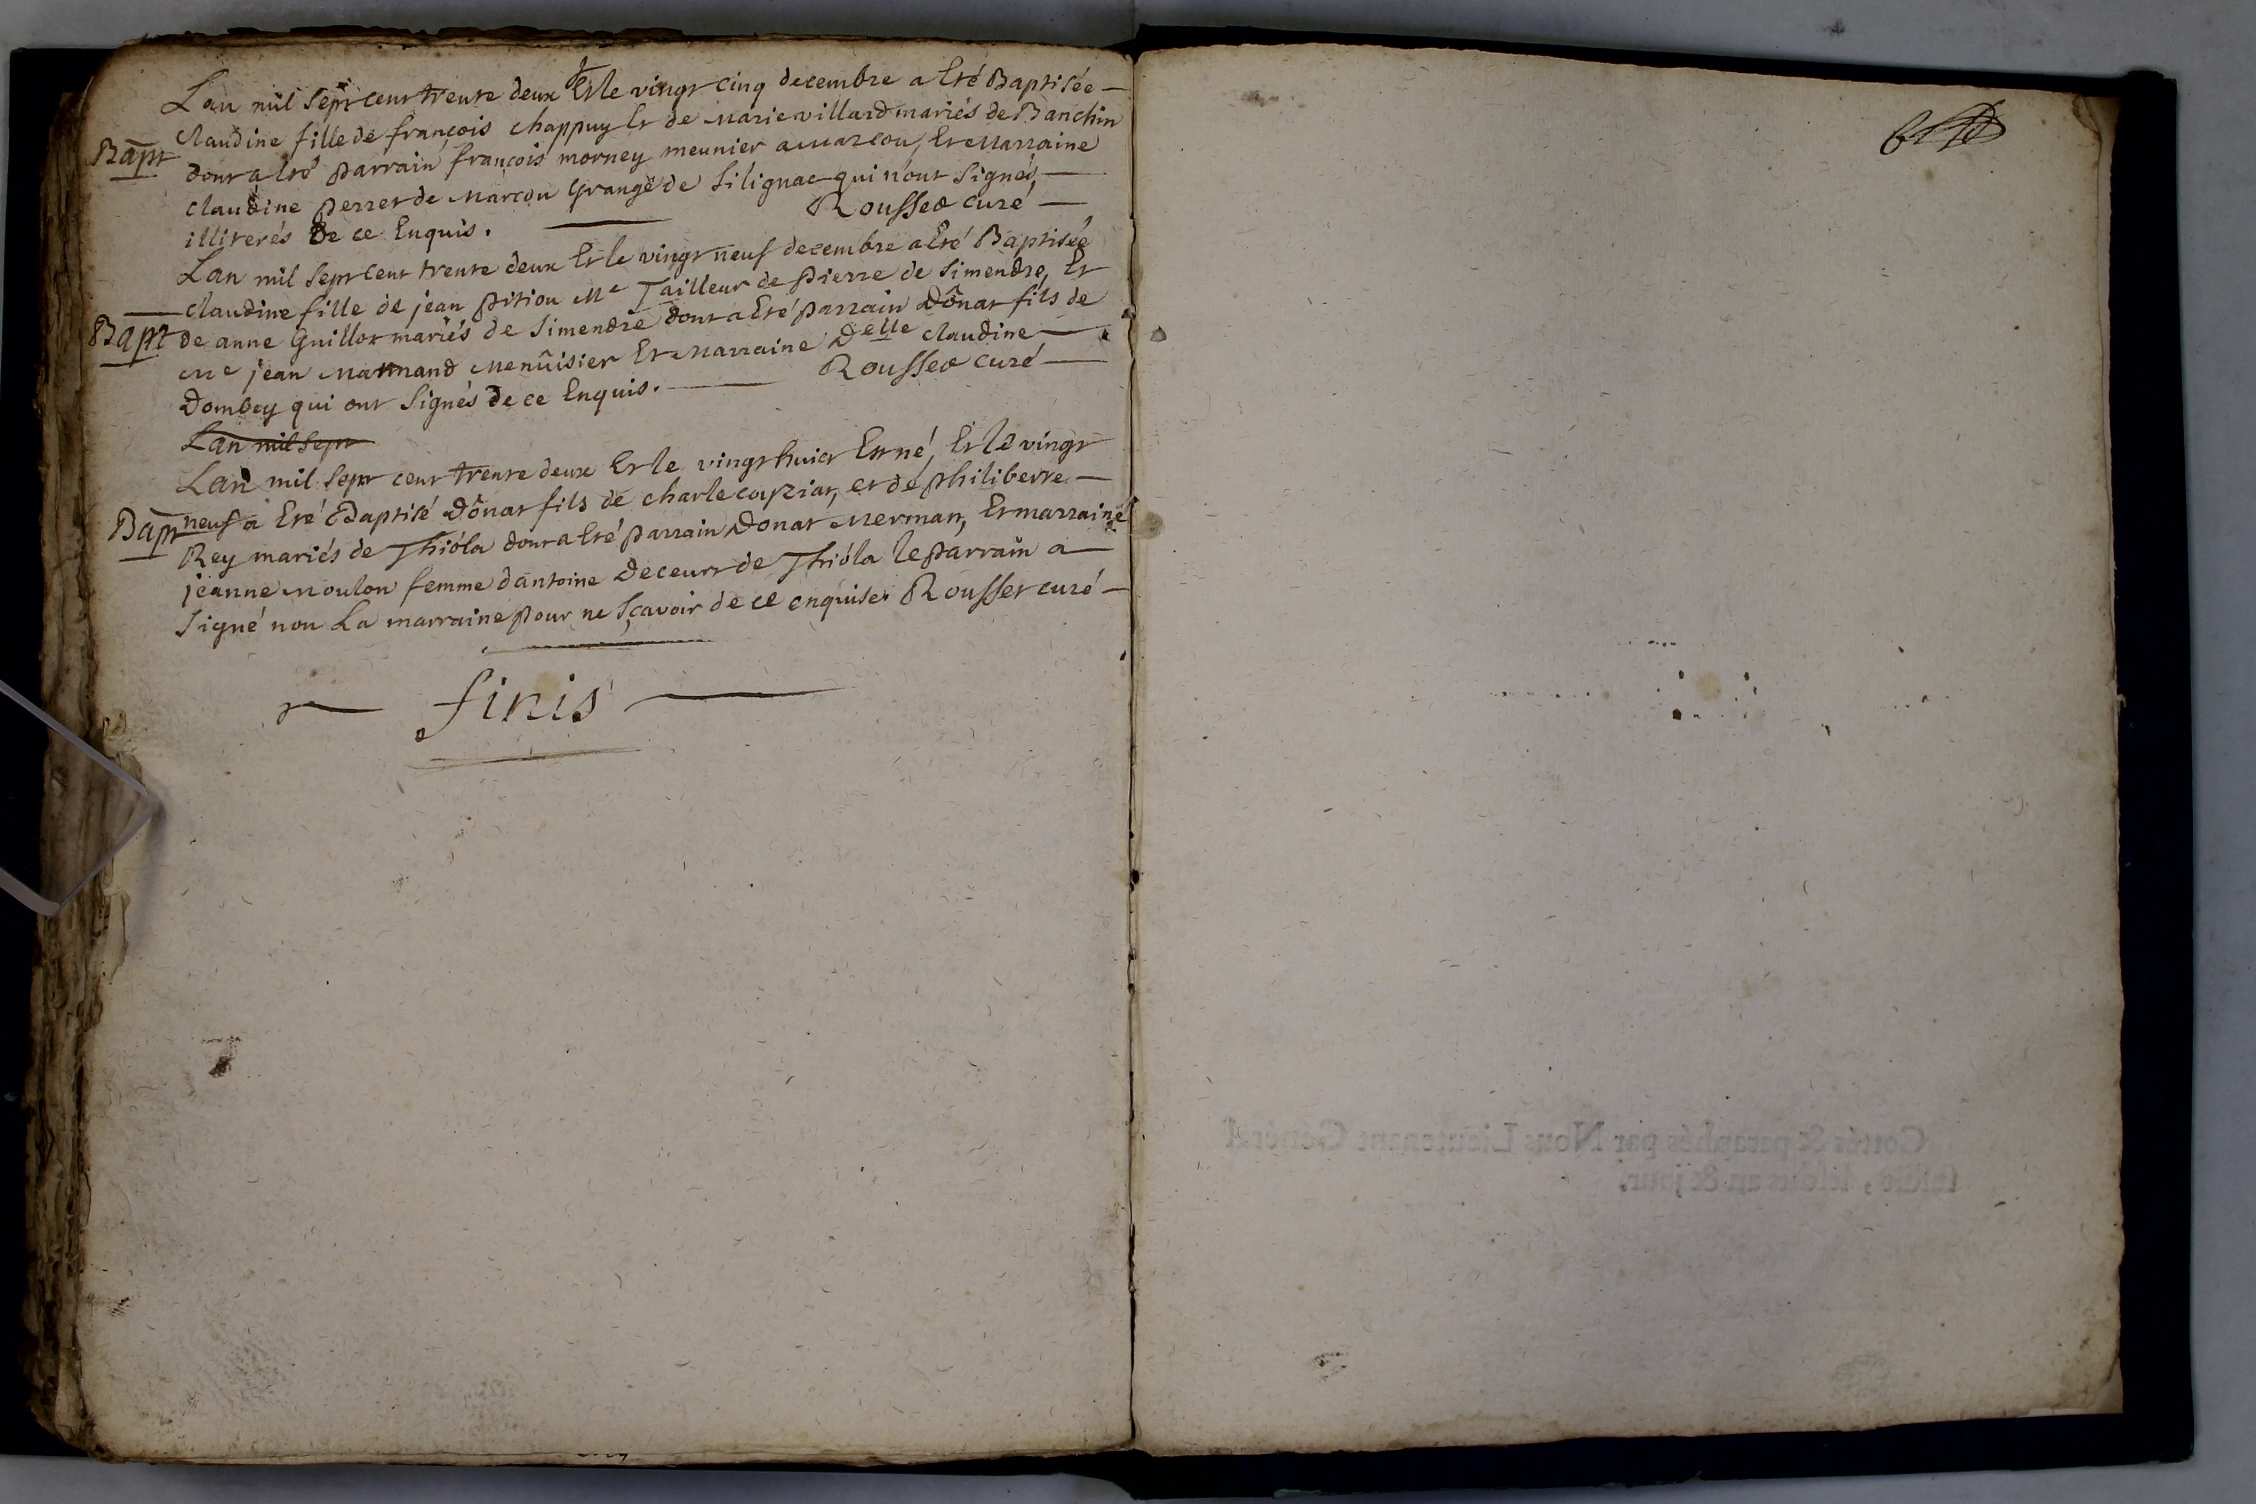 Lan mil sept cent trente deux Et le vingt cinq decembre a Eté Baptisée
Claudine fille de françois Chappuy Et de Marie villard mariés de Banchin
Bapt dont a Eté parrain françois morney meunier a Marcou, Et Marraine
claudine perret de Marcou Grange de Silignac qui n'ont Signés,
illiterés De ce Enquis. Rousset curé
Lan mil sept cent trente deux Et le vingt neuf decembre a Eté Baptisée
claudine fille de jean pitiou Me Tailleur de pierre de Simendre, Et
Bapt de anne Guillot mariés de Simendre dont a Eté parrain Dônat fils de
Me jean Marmand Menûisier Et Marraine Delle claudine
Dombey qui ont Signés De ce Enquis. Rousset curé
Lan mil sept
Lan mil sept cent trente deux Et le vingt huict Est né, Et le vingt
Bapt neuf a Eté Baptisé Dônat fils de charle coyziat, et de philiberte
Rey mariés de Thióla dont a Eté parrain Donat Merman, Et marraine
jeanne Moulon femme d'antoine Deceurt de Thióla le parrain a
Signé non La marraine pour ne sçavoir de ce enquise. Rousset curé
finis
Cottés & paraphés par Nous Lieutenant Général
susdit, lesdits an & jour.